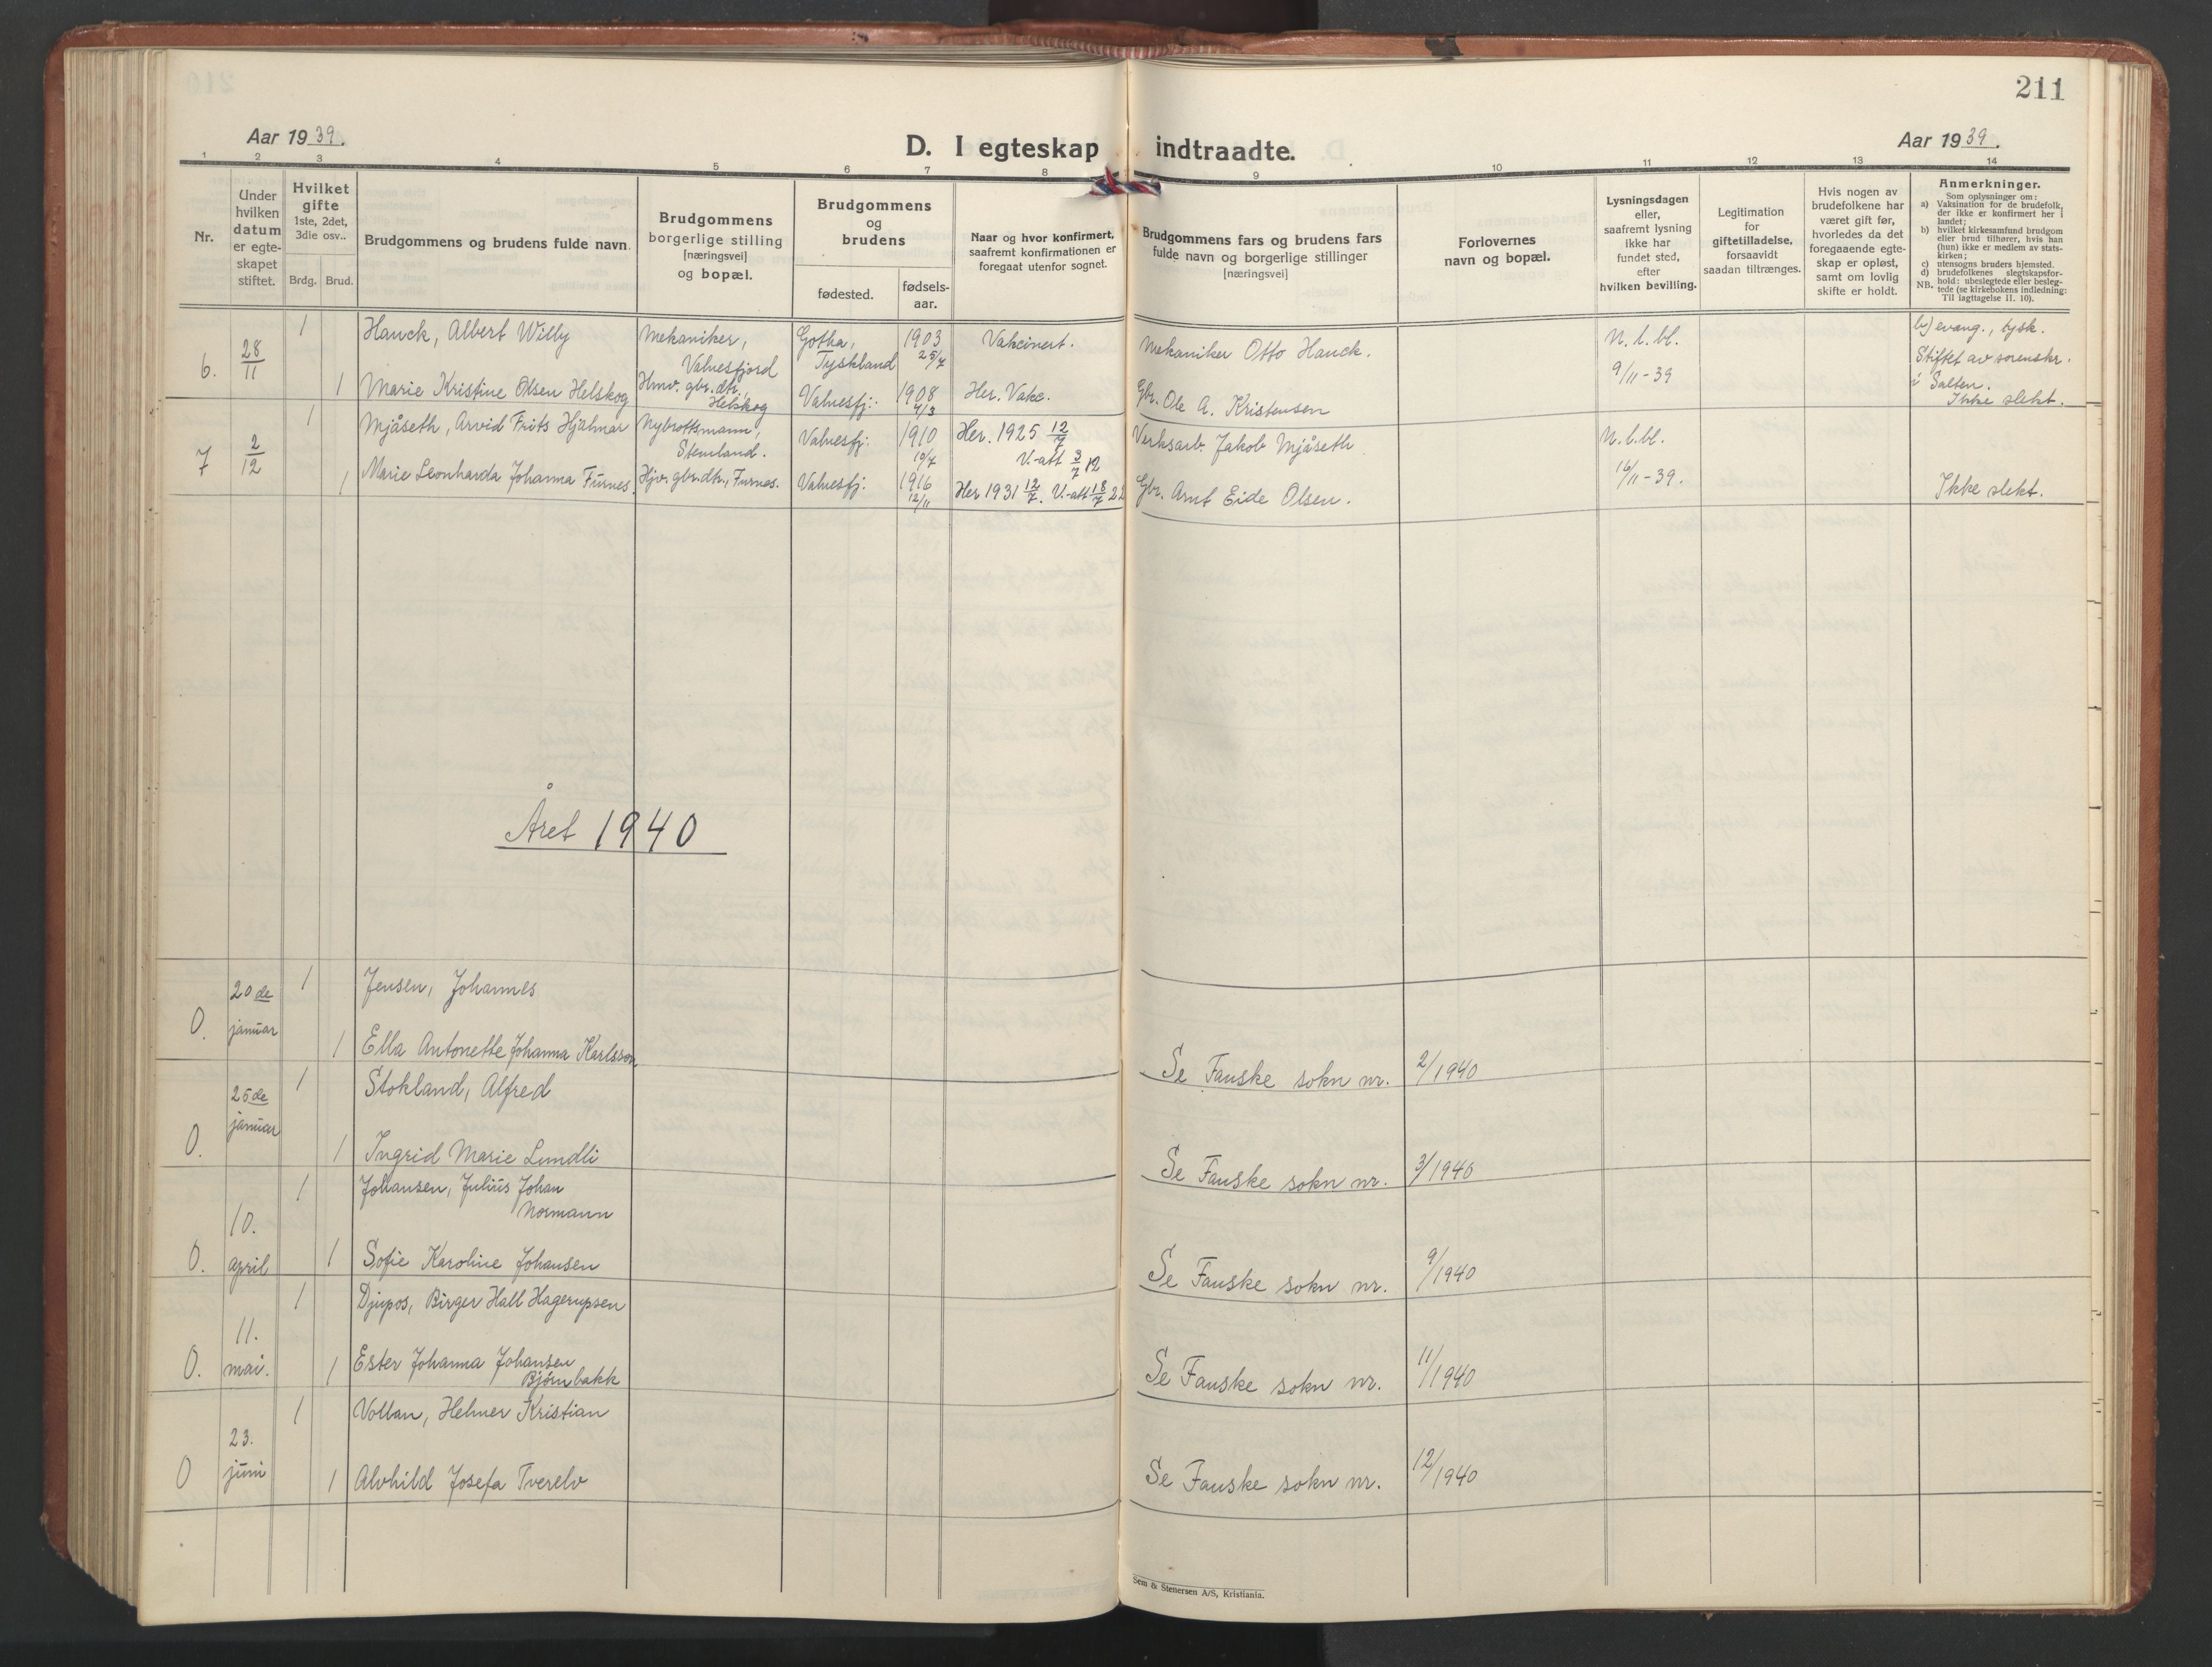 211
Aar 1939.
D. I egteskap indtraadte.
Aar 1939.
1 2 3 4 5 6 7 8 9 10 11 12 13 14
Nr.
Under hvilken datum er egte-skapet stiftet.
Hvilket gifte
1ste, 2det, 3die osv..
Brdg. Brud.
Brudgommens og brudens fulde navn
Brudgommens borgerlige stilling [næringsvei] og bopæl.
Brudgommens og brudens
fødested.
fødsels-aar.
Naar og hvor konfirmert, saafremt konfirmationen er foregaat utenfor sognet.
Brudgommens fars og brudens fars fulde navn og borgerlige stillinger [næringsvei]
Forlovernes navn og bopæl.
Lysningsdagen eller, saafremt lysning ikke har fundet sted, efter hvilken bevilling.
Legitimation for giftetilladelse, forsaavidt saadan tiltrænges.
Hvis nogen av brudefolkene har været gift før, hvorledes da det foregaaende egte-skap er opløst, samt om lovlig skifte er holdt.
Anmerkninger.
Som oplysninger om:
a) Vaksination for de brudefolk, der ikke er konfirmert her i landet;
b) hvilket kirkesamfund brudgom eller brud tilhører, hvis han (hun) ikke er medlem av stats-kirken;
c) utensogns bruders hjemsted.
d) brudefolkenes slegtskapsfor-
NB. hold: ubeslegtede eller besleg-tede (se kirkebokens indledning: Til iagttagelse II. 10).
6. 28/11 1 Hauck, Albert Willy Mekaniker, Valnesfjord Gotha, Tyskland 1903 25/7 Vakcinert. Mekaniker Otto Hauck. N. l. bl. 9/11-39 b) evang., tysk. Stiftet av sorenskr. i Salten. Ikke slekt.
1 Marie Kristine Olsen Helskog Hmv. gbr. dtr. Helskog Valnesfj. 1908 4/3 Her. Vakc. Gbr. Ole A. Kristensen
7 2/12 1 Mjåseth, Arvid Frits Hjalmar Nybrottsmann, Stemland. Valnesfj. 1910 10/7 Her. 1925 12/7 V.-att 3/7 12 Verksarb. Jakob Mjåseth N. l. bl. 16/11-39.
1 Marie Leonharda Johanna Furnes. Hjv. gbr.dtr., Furnes. Valnesfj. 1916 12/11 Her 1931 12/7. V.-att 18/7 22 Gbr. Arnt Eide Olsen. Ikke slekt.
Året 1940
0. 20de januar 1 Jensen, Johannes
1 Ella Antonette Johanna Karlsson Se Fauske sokn nr. 2/1940
0. 25de januar 1 Stokland, Alfred
1 Ingrid Marie Lundli Se Fauske sokn nr. 3/1940
0. 10. april 1 Johansen, Julius Johan Normann
1 Sofie Karoline Johansen Se Fauske sokn nr. 9/1940
0. 11. mai. 1 Djupos, Birger Hall Hagerupsen
1 Ester Johanna Johansen Bjørnbakk Se Fauske sokn nr. 11/1940
0 23. juni 1 Vollan, Helmer Kristian
1 Alvhild Josefa Tverelv Se Fauske sokn nr. 12/1940
Sem & Stenersen A/S, Kristiania.